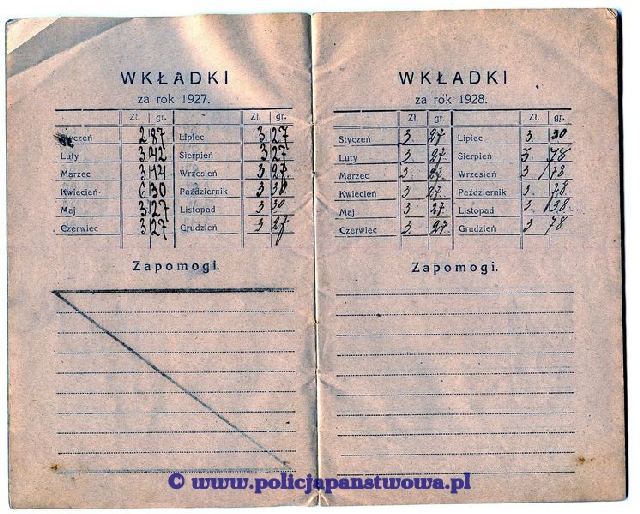 WKŁADKI
za rok 1927.
Zł. gr. Zł. gr.
Styczeń 2 87 Lipiec 3 27
Luty 3 42 Sierpień 3 27
Marzec 3 14 Wrzesień 3 27
Kwiecień 6 30 Październik 3 30
Maj 3 27 Listopad 3 30
Czerwiec 3 27 Grudzień 3 27
Zapomogi.
WKŁADKI
za rok 1928.
Zł. gr. Zł. gr.
Styczeń 3. 27. Lipiec 3. 30
Luty 3. 27. Sierpień 3. 78
Marzec 3. Wrzesień 3 78
Kwiecień 3. 27. Październik 3. 78.
Maj 3. 27. Listopad 3.
Czerwiec 3. 27. Grudzień 3 78
Zapomogi.
© www.policjapanstwowa.pl